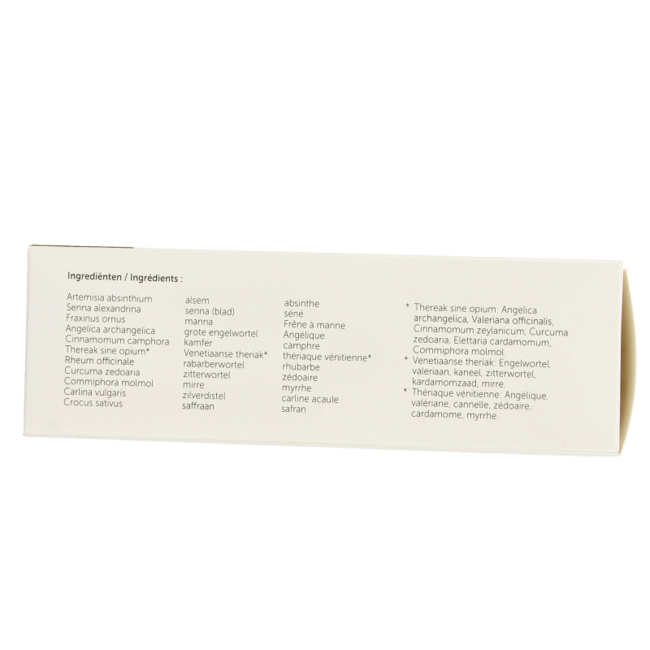 Ingrediënten / Ingrédients :
Artemisia absinthium
Senna alexandrina
Fraxinus ornus
Angelica archangelica
Cinnamomum camphora
Thereak sine opium*
Rheum officinale
Curcuma zedoaria
Commiphora molmol
Carlina vulgaris
Crocus sativus
alsem
senna (blad)
manna
grote engelwortel
kamfer
Venetiaanse theriak*
rabarberwortel
zitterwortel
mirre
zilverdistel
saffraan
absinthe
séné
Frêne à manne
Angélique
camphre
thériaque vénitienne*
rhubarbe
zédoaire
myrrhe
carline acaule
safran
* Thereak sine opium: Angelica
archangelica, Valeriana officinalis,
Cinnamomum zeylanicum, Curcuma
zedoaria, Elettaria cardamomum,
Commiphora molmol.
* Venetiaanse theriak: Engelwortel,
valeriaan, kaneel, zitterwortel,
kardamomzaad, mirre.
* Thériaque vénitienne: Angélique,
valériane, cannelle, zédoaire,
cardamome, myrrhe.